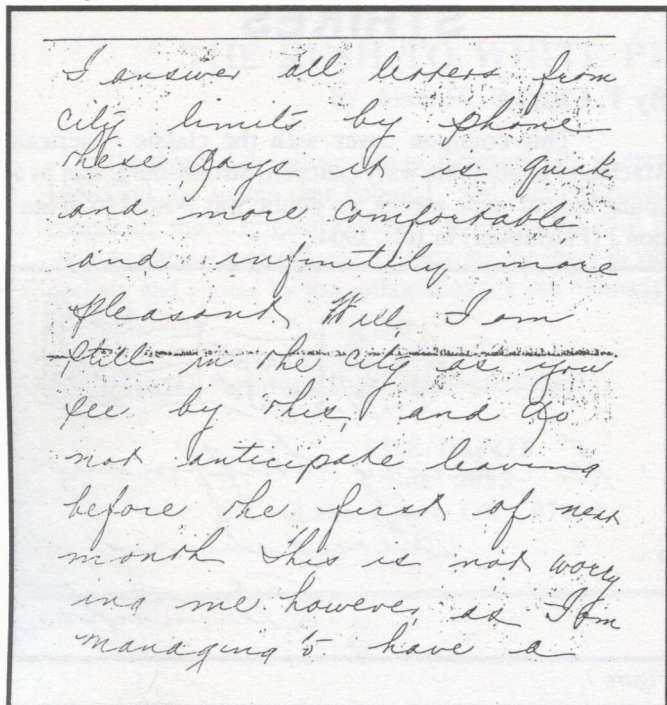 I answer all letters from
city limits by phone
these days it is quicker
and more comfortable
and infinitely more
pleasant. Well, I am
still in the city as you
see by this, and do
not anticipate leaving
before the first of next
month This is not worry
ing me however, as I am
managing to have a